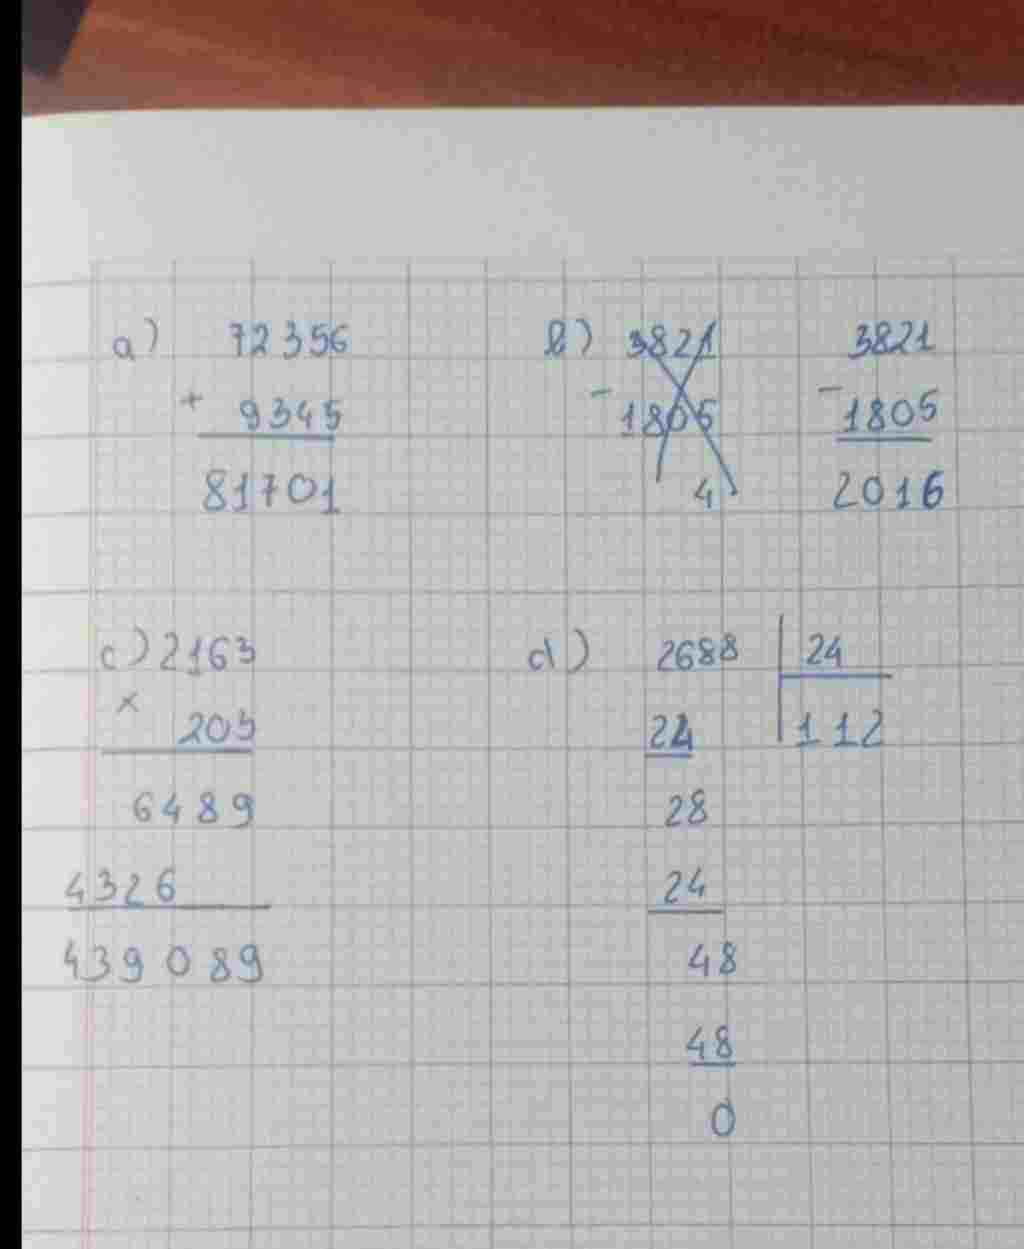 a) 72356
+ 9345
81701
b) 3821
- 1805
4
3821
- 1805
2016
c) 2163
x 203
6489
4326
439089
d) 2688 | 24
24 112
28
24
48
48
0